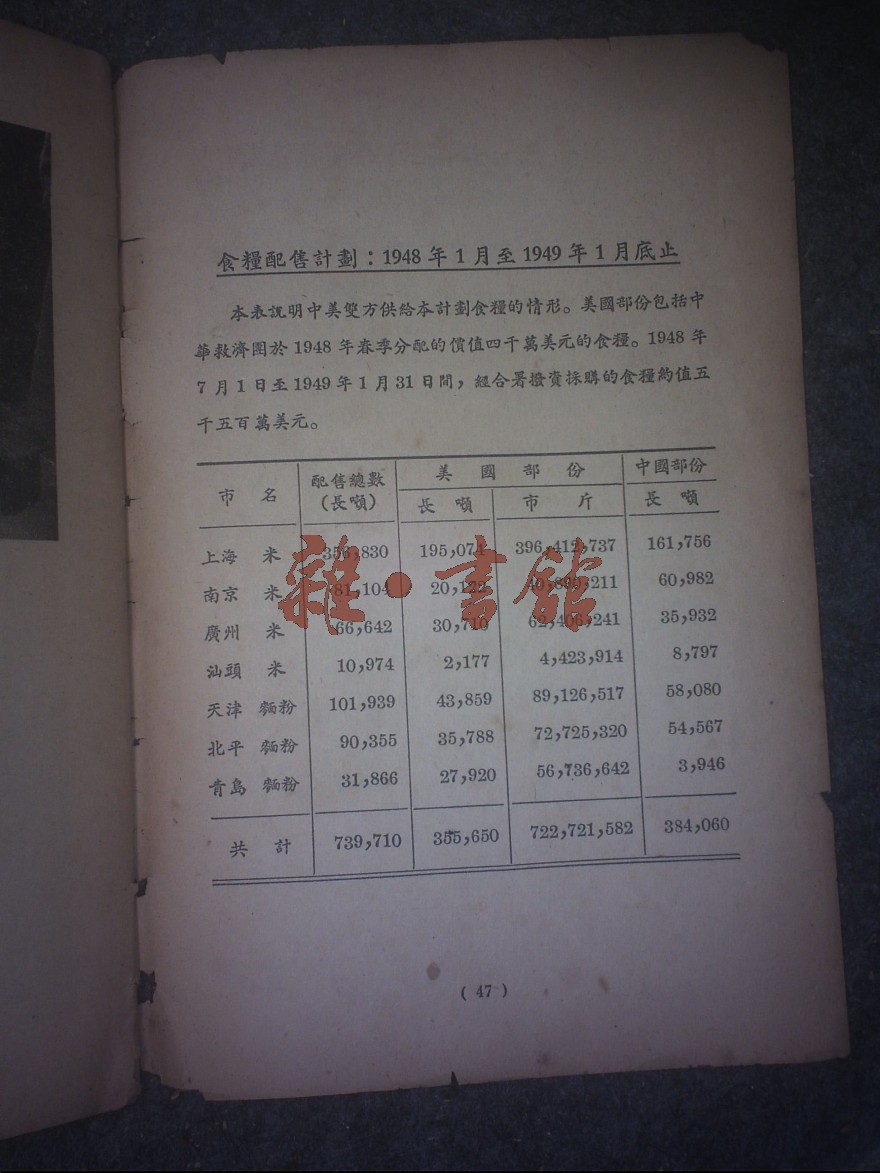 食糧配售計劃：1948年1月至1949年1月底止
本表說明中美雙方供給本計劃食糧的情形。美國部份包括中
華救濟團於1948年春季分配的價值四千萬美元的食糧。1948年
7月1日至1949年1月31日間，經合署撥資採購的食糧約值五
千五百萬美元。
市名 配售總數（長噸） 美國部份 中國部份
長噸 市斤 長噸
上海 米 356,830 195,074 396,412,737 161,756
南京 米 81,104 20,122 40,890,211 60,982
廣州 米 66,642 30,710 62,406,241 35,932
汕頭 米 10,974 2,177 4,423,914 8,797
天津 麵粉 101,939 43,859 89,126,517 58,080
北平 麵粉 90,355 35,788 72,725,320 54,567
青島 麵粉 31,866 27,920 56,736,642 3,946
共計 739,710 355,650 722,721,582 384,060
雜·書館
(47)